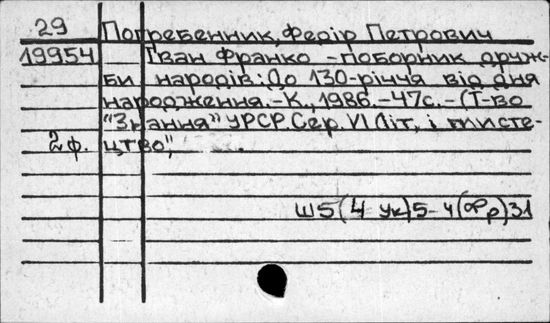 29 Погребенник, Федір Петрович
19954 Іван Франко – поборник друж-
би народів: До 130-річчя від дня
народження. – К., 1986. – 47с. – (Т-во
"Знання" УРСР. Сер. VI Літ. і мисте-
2ф. цтво",
Ш5(4 Ук)5-4(Фр)31